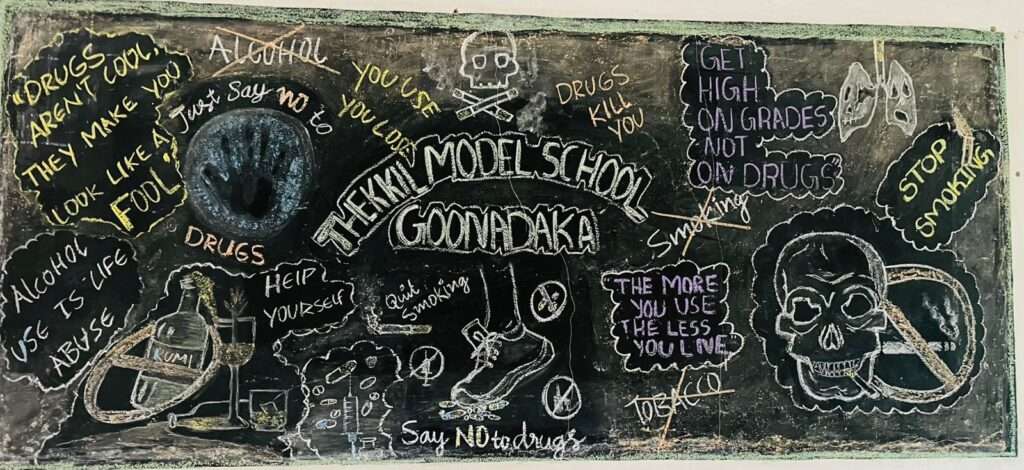 "DRUGS
AREN'T COOL,
THEY MAKE YOU
LOOK LIKE A
FOOL"
ALCOHOL
Just Say NO to
DRUGS
YOU USE
YOU LOSE
DRUGS
KILL
YOU
THEKKIL MODEL SCHOOL
GOONADAKA
GET
HIGH
ON GRADES
NOT
ON DRUGS"
STOP
SMOKING
Smoking
ALCOHOL
USE IS 'LIFE
ABUSE
HElP
YOURSELF
RUMI
Quit
Smoking
THE MORE
YOU USE
THE LESS
YOU LIVE
TOBACCO
Say NO to drugs